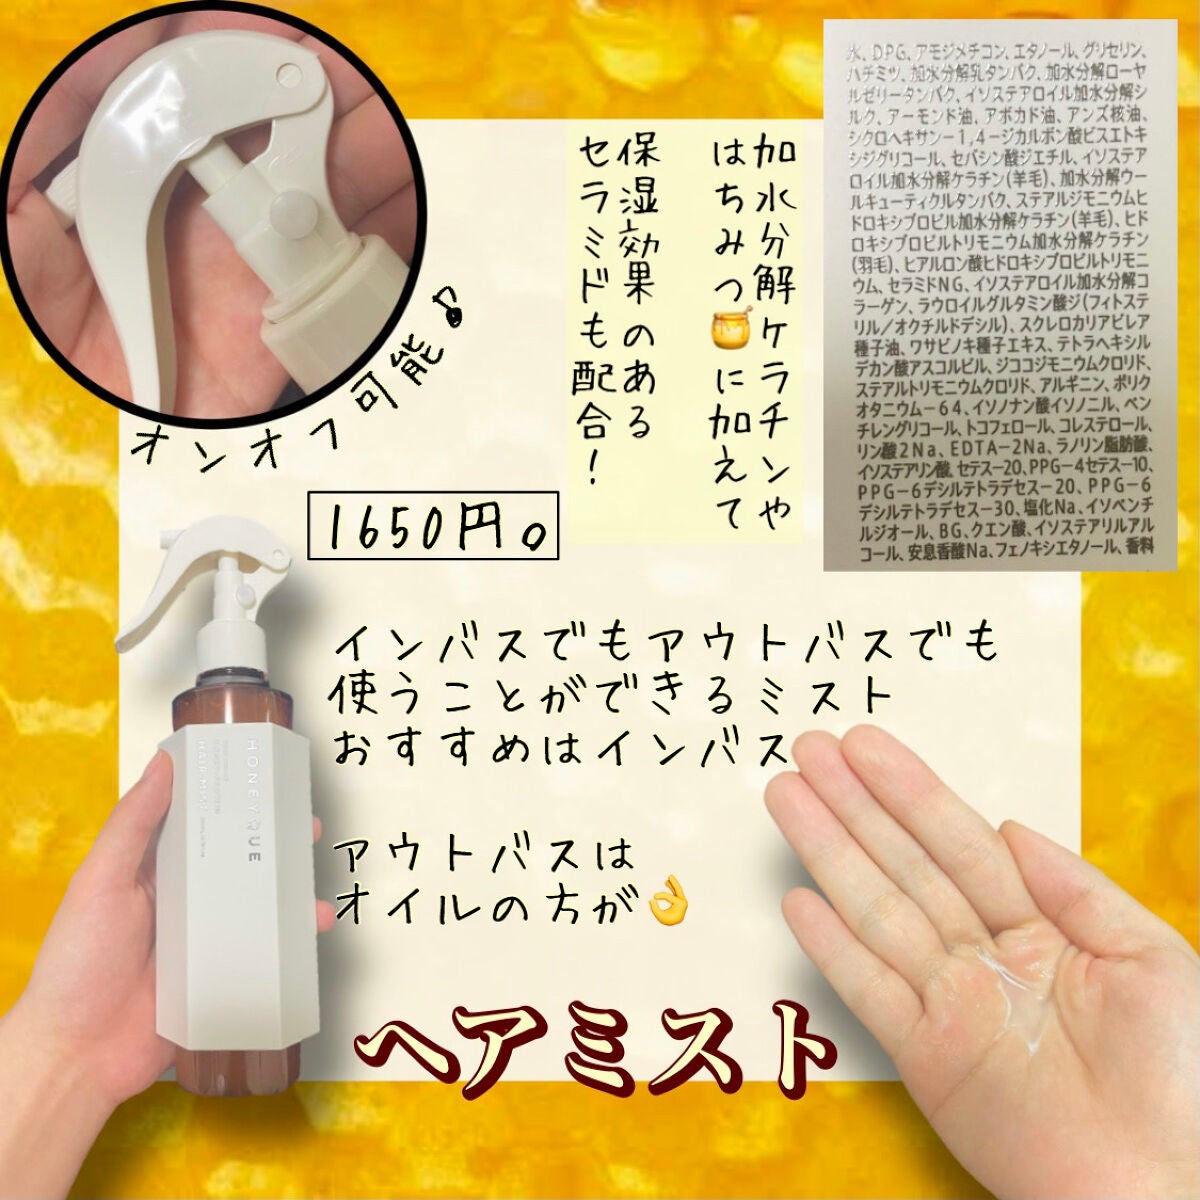 水、DPG、アモジメチコン、エタノール、グリセリン、
ハチミツ、加水分解乳タンパク、加水分解ローヤ
ルゼリータンパク、イソステアロイル加水分解シ
ルク、アーモンド油、アボカド油、アンズ核油、
シクロヘキサン－1,4－ジカルボン酸ビスエトキ
シジグリコール、セバシン酸ジエチル、イソステア
ロイル加水分解ケラチン(羊毛)、加水分解ウー
ルキューティクルタンパク、ステアルジモニウムヒ
ドロキシプロピル加水分解ケラチン(羊毛)、ヒド
ロキシプロピルトリモニウム加水分解ケラチン
(羽毛)、ヒアルロン酸ヒドロキシプロピルトリモニ
ウム、セラミドNG、イソステアロイル加水分解コ
ラーゲン、ラウロイルグルタミン酸ジ(フィトステ
リル／オクチルドデシル)、スクレロカリアビレア
種子油、ワサビノキ種子エキス、テトラヘキシル
デカン酸アスコルビル、ジココジモニウムクロリド、
ステアルトリモニウムクロリド、アルギニン、ポリク
オタニウム－64、イソノナン酸イソノニル、ペン
チレングリコール、トコフェロール、コレステロール、
リン酸2Na、EDTA－2Na、ラノリン脂肪酸、
イソステアリン酸、セテス－20、PPG－4セテス－10、
PPG－6デシルテトラデセス－20、PPG－6
デシルテトラデセス－30、塩化Na、イソペンチ
ルジオール、BG、クエン酸、イソステアリルアル
コール、安息香酸Na、フェノキシエタノール、香料
加水分解ケラチンや
はちみつ🍯に加えて
保湿効果のある
セラミドも配合！
オンオフ可能♪
1650円。
インバスでもアウトバスでも
使うことができるミスト
おすすめはインバス
アウトバスは
オイルの方が👌
HONEYQUE
HAIR MIST
ヘアミスト